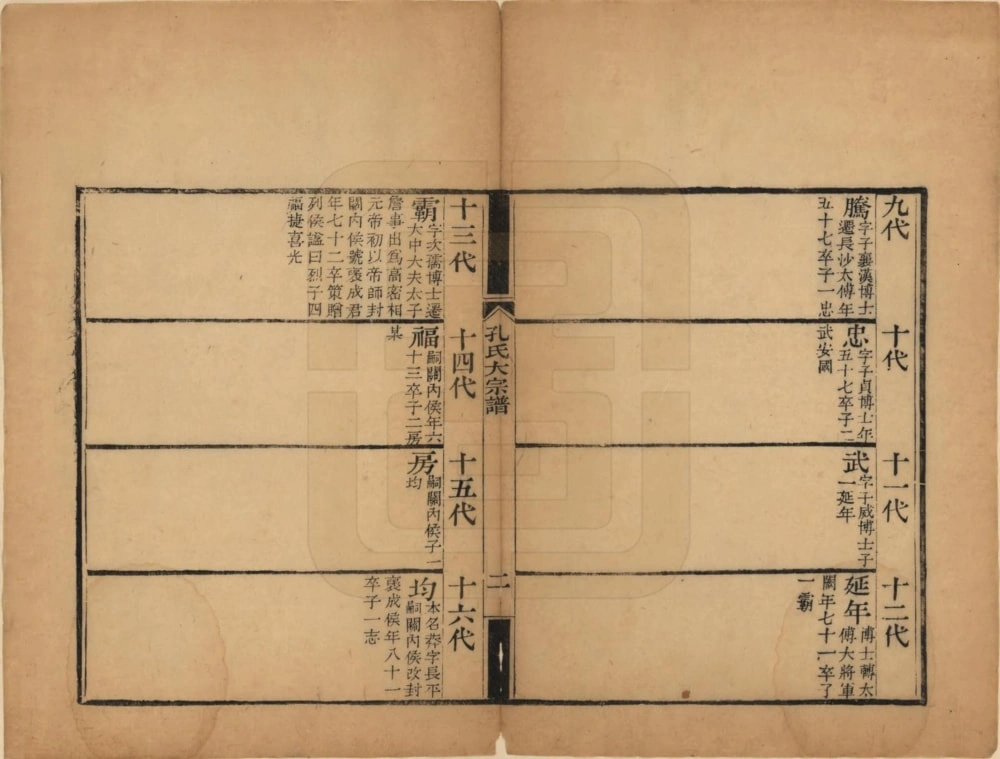 九代
騰
字子襄漢博士
遷長沙太傅年
五十七卒子一忠
十代
忠
字子貞博士年
五十七卒子二
武安國
十一代
武
字子威博士子
一延年
十二代
延年
博士轉太
傅大將軍
年七十一卒子
一霸
孔氏大宗譜
二
十三代
霸
字次孺博士遷
太中大夫太子
詹事出為高密相
元帝初以帝師封
關內侯號褒成君
年七十二卒策贈
列侯諡曰烈子四
福捷喜光
十四代
福
嗣關內侯年六
十三卒子二房
某
十五代
房
嗣關內侯子一
均
十六代
均
本名莽字長平
嗣關內侯改封
褒成侯年八十一
卒子一志